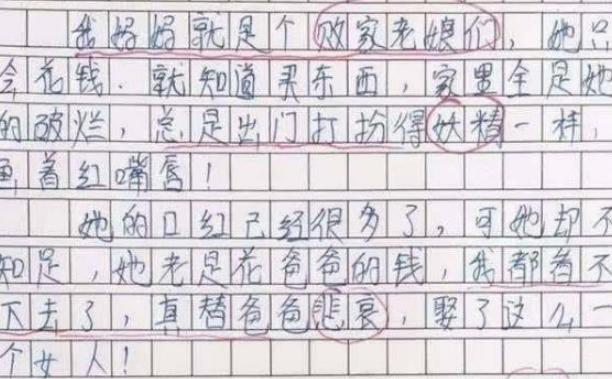 我妈妈就是个败家老娘们，她只
会花钱．就知道买东西，家里全是她
的破烂，总是出门打扮得妖精一样，
画着红嘴唇！
她的口红已经很多了，可她却不
知足，她老是花爸爸的钱，我都看不
下去了，真替爸爸悲哀，娶了这么一
个女人！